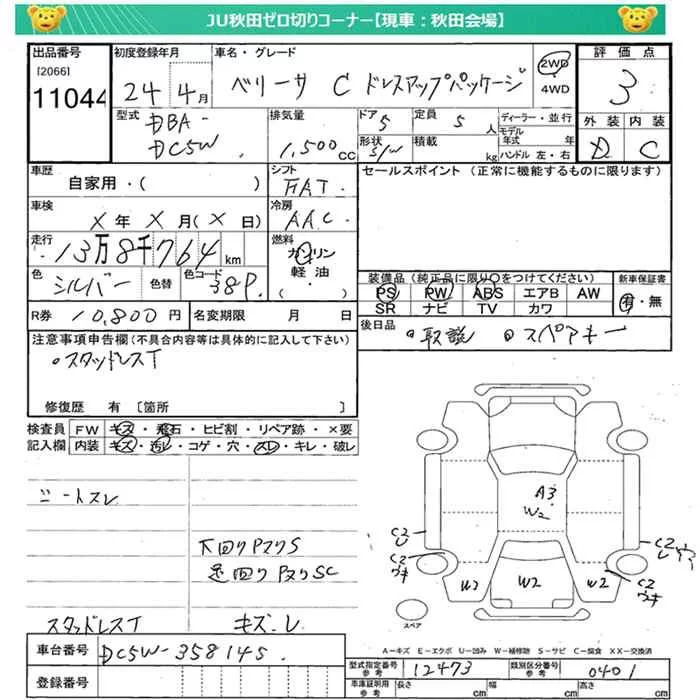 JU秋田ゼロ切りコーナー【現車：秋田会場】
出品番号 初度登録年月 車名・グレード 評価点
[2066]
11044 24年 4月 ベリーサ C ドレスアップパッケージ 2WD・4WD 3
型式 排気量 ドア 定員 ディーラー・並行 外装 内装
DBA-DC5W 1,500cc 5 5人 モデル年式 年 D C
形状 S/W 積載 kg ハンドル 左・右
車歴 シフト セールスポイント（正常に機能するものに限ります）
自家用・( ) FAT
車検 冷房
X年X月(X日) AAC
走行 燃料
13万8千764km ガソリン・軽油・( )
色 色替 色コード 装備品（純正品に限り○をつけてください） 新車保証書
シルバー 38P. PS PW ABS エアB AW 有・無
SR ナビ TV カワ
R券 10,800円 名変期限 月 日 後日品 ○取説 ○スペアキー
注意事項申告欄（不具合内容等は具体的に記入して下さい）
○スタッドレスT
修復歴 有 [箇所 ]
検査員記入欄 FW キズ・飛石・ヒビ割・リペア跡・×要
内装 キズ・汚レ・コゲ・穴・スレ・キレ・破レ
シートスレ
A3
W2
下回りPヌリS C2 U C2
足回りPヌリSC C2 ウキ W2 W2 W2 C2 ウキ
スタッドレスT キズ・レ スペア
A－キズ E－エクボ U－凹み W－補修跡 S－サビ C－腐食 XX－交換済
車台番号 DC5W-358145. 型式指定番号 参考 12473 類別区分番号 参考 0401
登録番号 車庫証明用 参考 長さ cm 幅 cm 高さ cm